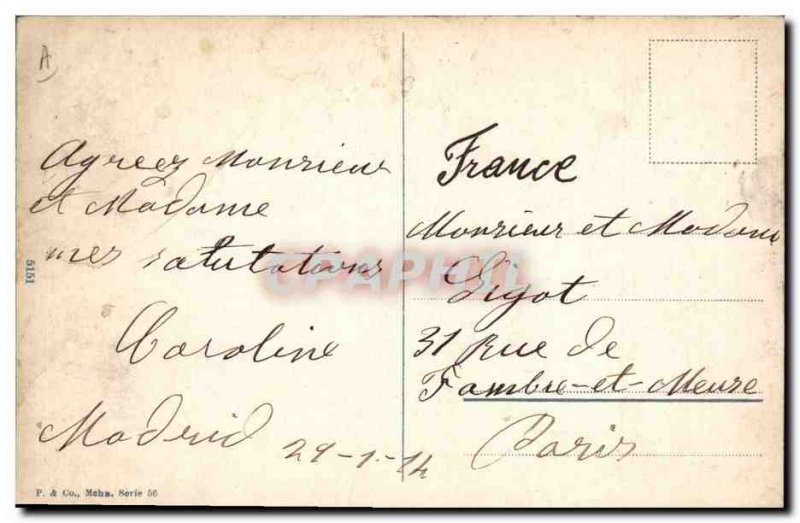 A
Agréez Monsieur
et Madame
mes salutations
Caroline
Madrid 29-1-14
5151
P. & Co., Mchn. Serie 56
France
Monsieur et Madame
Gigot
31 Rue de
Sambre-et-Meuse
Paris
CPAPHIL